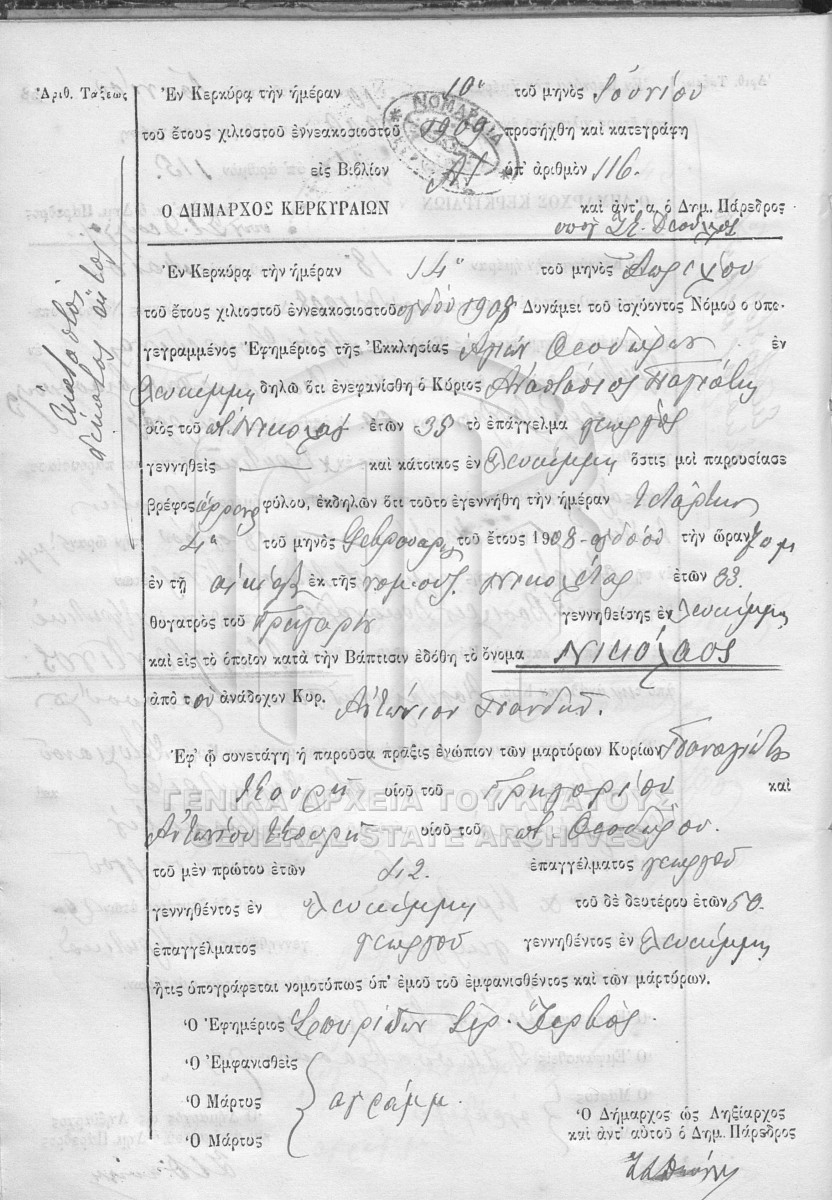 Ἀριθ. Τάξεως
Ἐν Κερκύρᾳ τὴν ἡμέραν 10η τοῦ μηνὸς Ἰουνίου
τοῦ ἔτους χιλιοστοῦ ἐννεακοσιοστοῦ 1909 προσήχθη καὶ κατεγράφη
εἰς Βιβλίον ὑπ' ἀριθμὸν 116.
Ο ΔΗΜΑΡΧΟΣ ΚΕΡΚΥΡΑΙΩΝ καὶ ἀντ' α. ὁ Δημ. Πάρεδρος
ΝΟΜΑΡΧΙΑ
Ἑκατοστὸς δέκατος ἕκτος
Ἐν Κερκύρᾳ τὴν ἡμέραν 14η τοῦ μηνὸς Ἀπριλίου
τοῦ ἔτους χιλιοστοῦ ἐννεακοσιοστοῦ ὀγδόου 1908 Δυνάμει τοῦ ἰσχύοντος Νόμου ο υπο-
γεγραμμένος Ἐφημέριος τῆς Ἐκκλησίας Ἁγίων Θεοδώρων ἐν
Λευκίμμῃ δηλῶ ὅτι ἐνεφανίσθη ὁ Κύριος Ἀναστάσιος
υἱὸς τοῦ π. Νικολάου ἐτῶν 35 τὸ ἐπάγγελμα γεωργὸς
γεννηθεὶς — καὶ κάτοικος ἐν Λευκίμμῃ ὅστις μοὶ παρουσίασε
βρέφος ἄρρενος φύλου, ἐκδηλῶν ὅτι τοῦτο ἐγεννήθη τὴν ἡμέραν
4η τοῦ μηνὸς Φεβρουαρίου τοῦ ἔτους 1908 ὀγδόου τὴν ὥραν
ἐν τῇ οἰκίᾳ ἐκ τῆς νομ. συζ. Νικολέτας ἐτῶν 33.
θυγατρὸς τοῦ Γρηγορίου γεννηθείσης ἐν Λευκίμμῃ
καὶ εἰς τὸ ὁποῖον κατὰ τὴν Βάπτισιν ἐδόθη τὸ ὄνομα Νικόλαος
ἀπὸ τοῦ ἀνάδοχον Κυρ. Ἀντώνιον
Ἐφ' ᾧ συνετάγη ἡ παροῦσα πρᾶξις ἐνώπιον τῶν μαρτύρων Κυρίων Παναγιώτη
Κουρῆ υἱοῦ τοῦ Γρηγορίου καὶ
ΓΕΝΙΚΑ ΑΡΧΕΙΑ ΤΟΥ ΚΡΑΤΟΥΣ
Ἀντωνίου Κουρῆ υἱοῦ τοῦ π. Θεοδώρου.
GENERAL STATE ARCHIVES
τοῦ μὲν πρώτου ἐτῶν 42. ἐπαγγέλματος γεωργοῦ
γεννηθέντος ἐν Λευκίμμῃ τοῦ δὲ δευτέρου ἐτῶν 50.
ἐπαγγέλματος γεωργοῦ γεννηθέντος ἐν Λευκίμμῃ
ἥτις ὑπογράφεται νομοτύπως ὑπ' ἐμοῦ τοῦ ἐμφανισθέντος καὶ τῶν μαρτύρων.
Ὁ Ἐφημέριος Σπυρίδων
Ὁ Ἐμφανισθεὶς
Ὁ Μάρτυς ἀγράμμ.
Ὁ Μάρτυς
Ὁ Δήμαρχος ὡς Ληξίαρχος
καὶ ἀντ' αὐτοῦ ὁ Δημ. Πάρεδρος